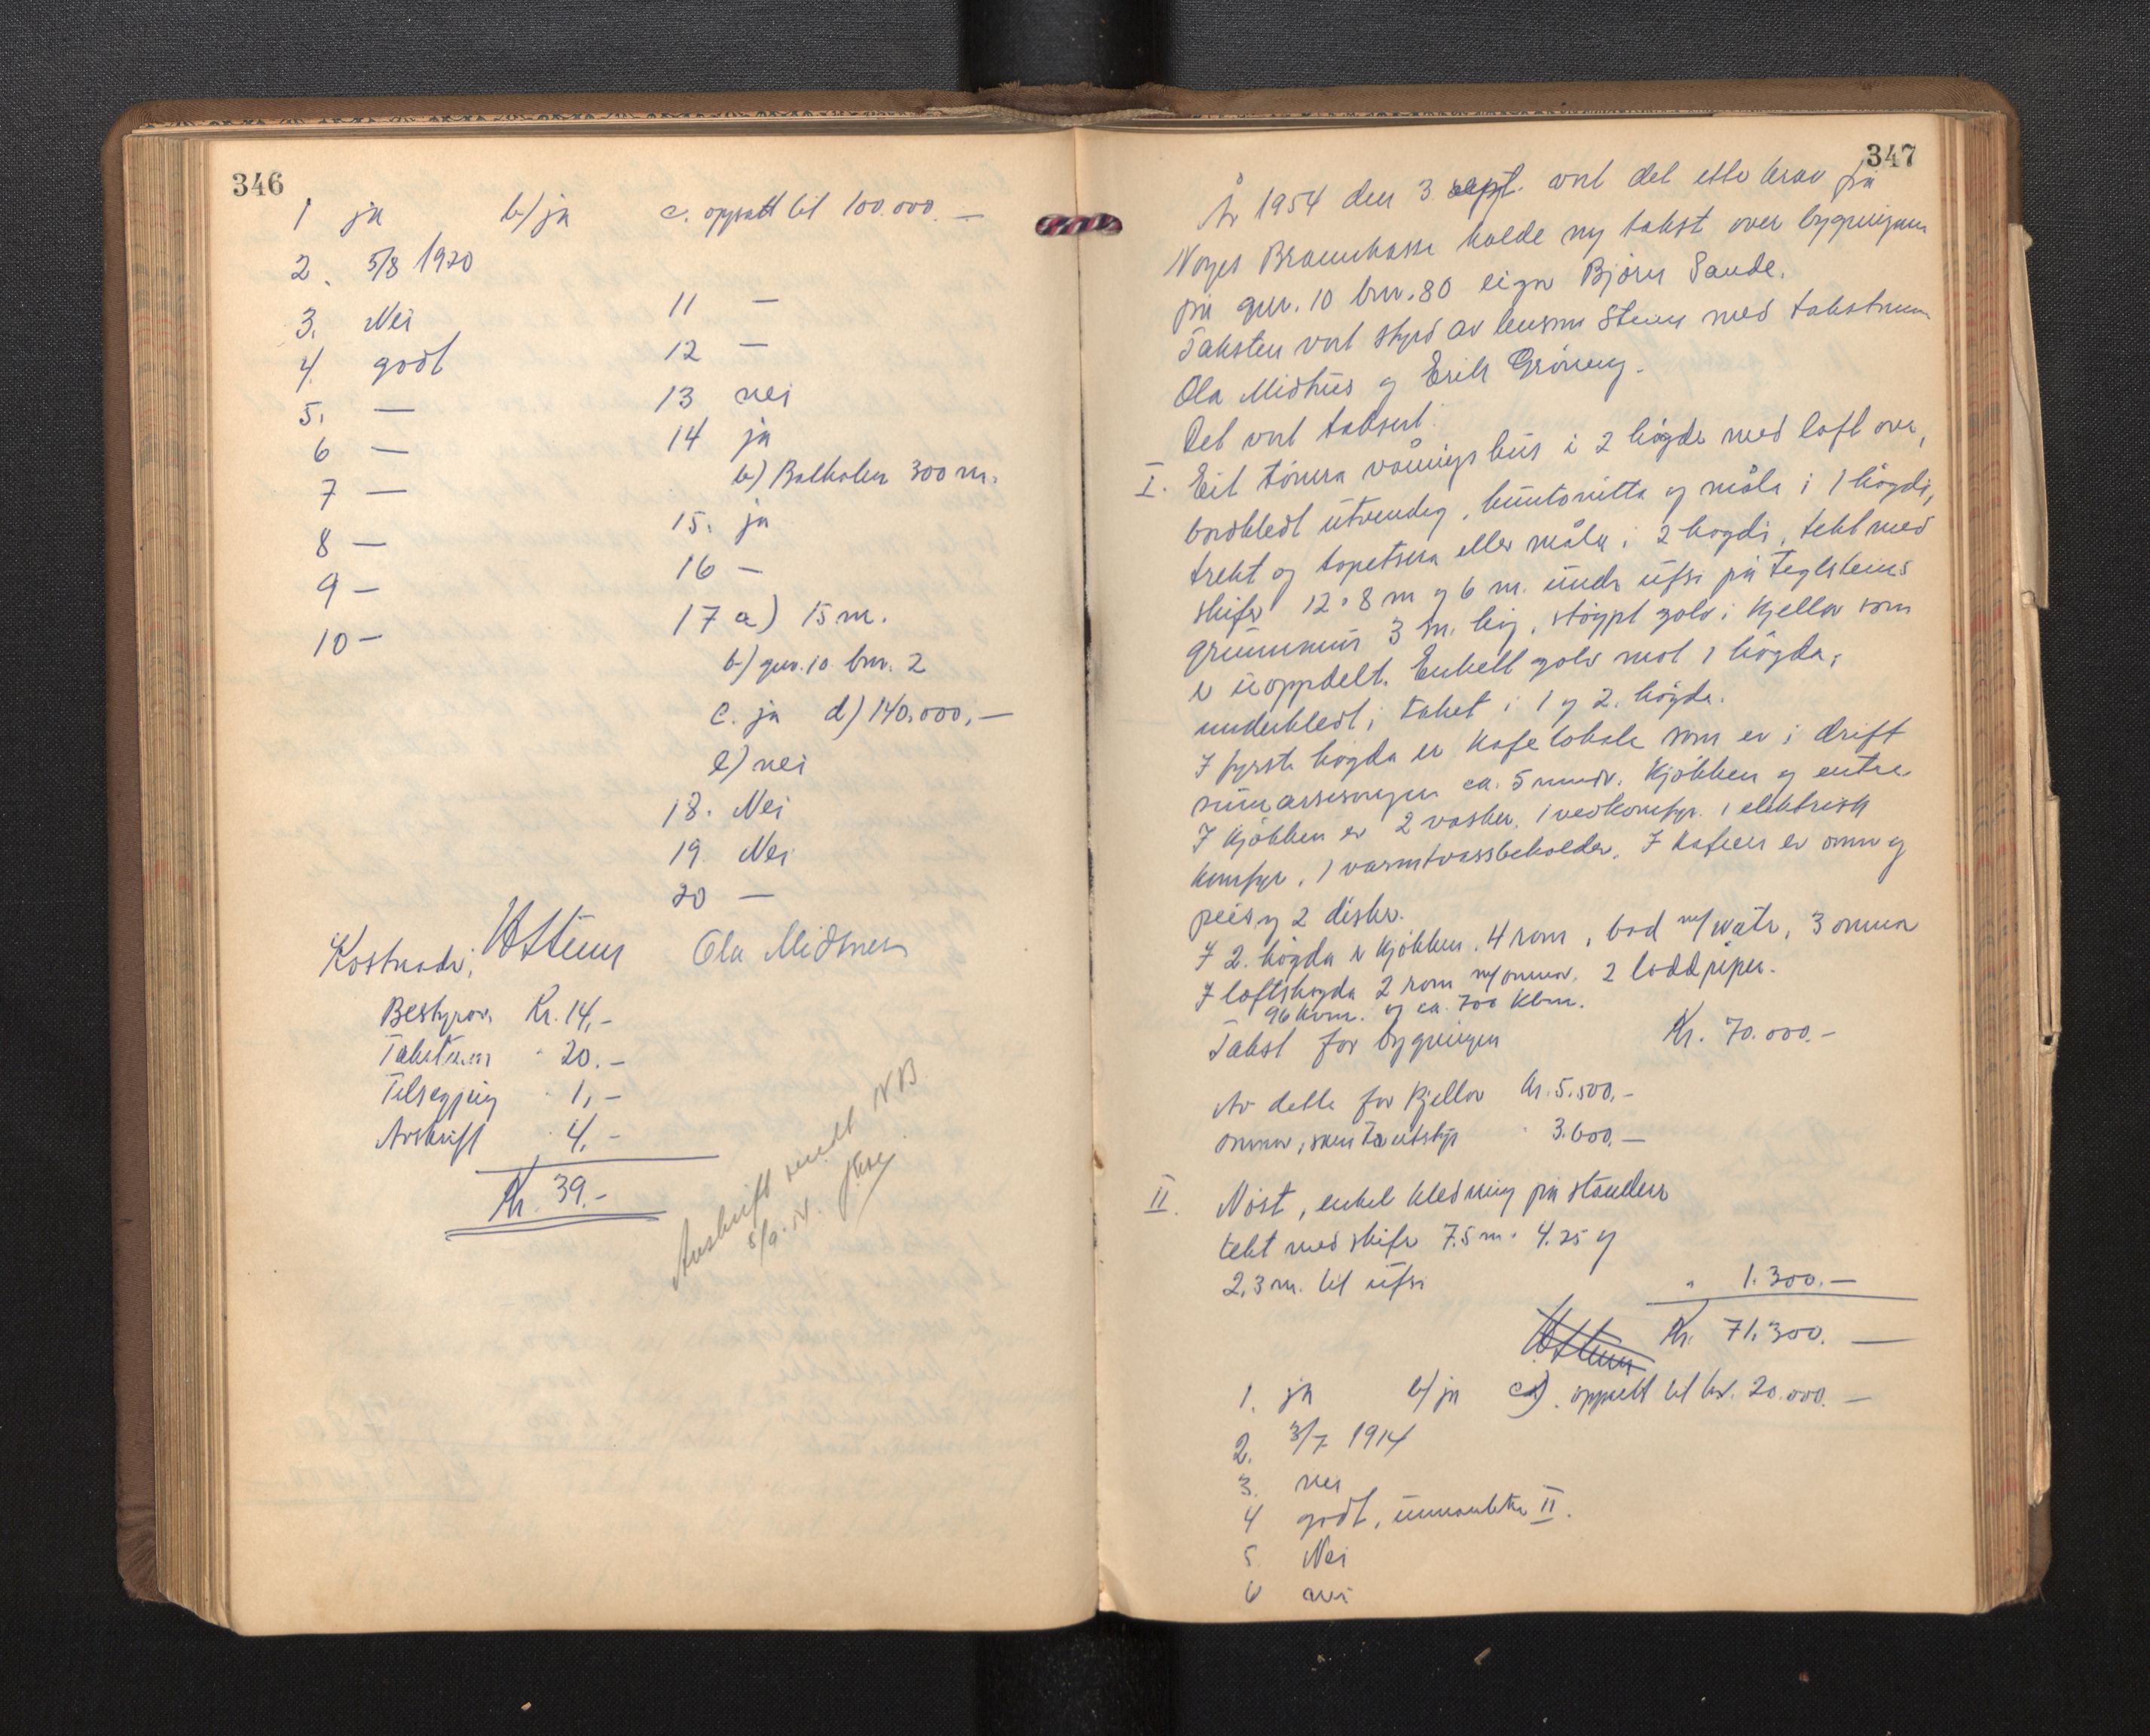 346
1 ja b/ ja c. oppsatt til 100.000.—
2. 5/8 1920
3. Nei
4. godt
5. —
6 —
7 —
8 —
9 —
10 —
11 —
12 —
13 nei
14 ja
b) Balholm 300 m.
15. ja
16 —
17 a) 15 m.
b) gnr. 10 bnr. 2
c. ja d) 140.000,—
e) nei
18. Nei
19. Nei
20 —
Kostnade; Ola Midthus
Bestyrar Kr. 14,-
Takstmenn " 20.-
Tilsegjing " 1,-
Avskrift " 4,-
Kr. 39.-
Avskrift sendt N.B.
347
År 1954 den 3 sept. vart det ette krav frå
Norges Brannkasse halde ny takst over bygningane
på gnr. 10 bnr. 80 eigar Björn Sande.
Taksten vart styrd av lensm Steen med takstmenn
Ola Midthus og Erik Gröneng.
Det vart taksert:
I. Eit tömra våningshus i 2 högder med loft over,
bordkledt utvendig, huntonitta og måla i 1 högdi,
trekt og tapetsera eller måla i 2 högdi, tekt med
skifer 12 · 8 m og 6 m. under ufsi på teglsteins
grunnmur 3 m. høg, støypt golv i kjellar som
er uoppdelt. Enkelt golv mot 1 högda,
underkledt i taket i 1 og 2. högda.
I fyrste högda er kafelokale som er i drift
sumarsesongen ca. 5 mndr. kjökken og entre
I kjökken er 2 vasker, 1 vedkomfyr. 1 elektrisk
komfyr, 1 varmtvassbeholder. I kafeen er omn og
peis og 2 diskar.
I 2. högda er kjökken, 4 rom, bad m/ watr, 3 omnar
I loftshögda 2 rom m/omnar. 2 loddpiper.
96 kvm. og ca. 700 kbm.
Takst for bygningen Kr. 70.000.-
Av dette for kjellar kr. 5.500,-
omnar, sanitærutstyr " 3.600.—
II. Nöst, enkel kledning på standera
tekt med skifer 7.5 m · 4.25 og
2,3 m. til ufsi " 1.300.—
Kr. 71.300.—
1. ja b/ ja c). oppsett til kr. 20.000.—
2. 3/7 1914
3. nei
4 godt, unnateke II.
5 Nei
6 nei